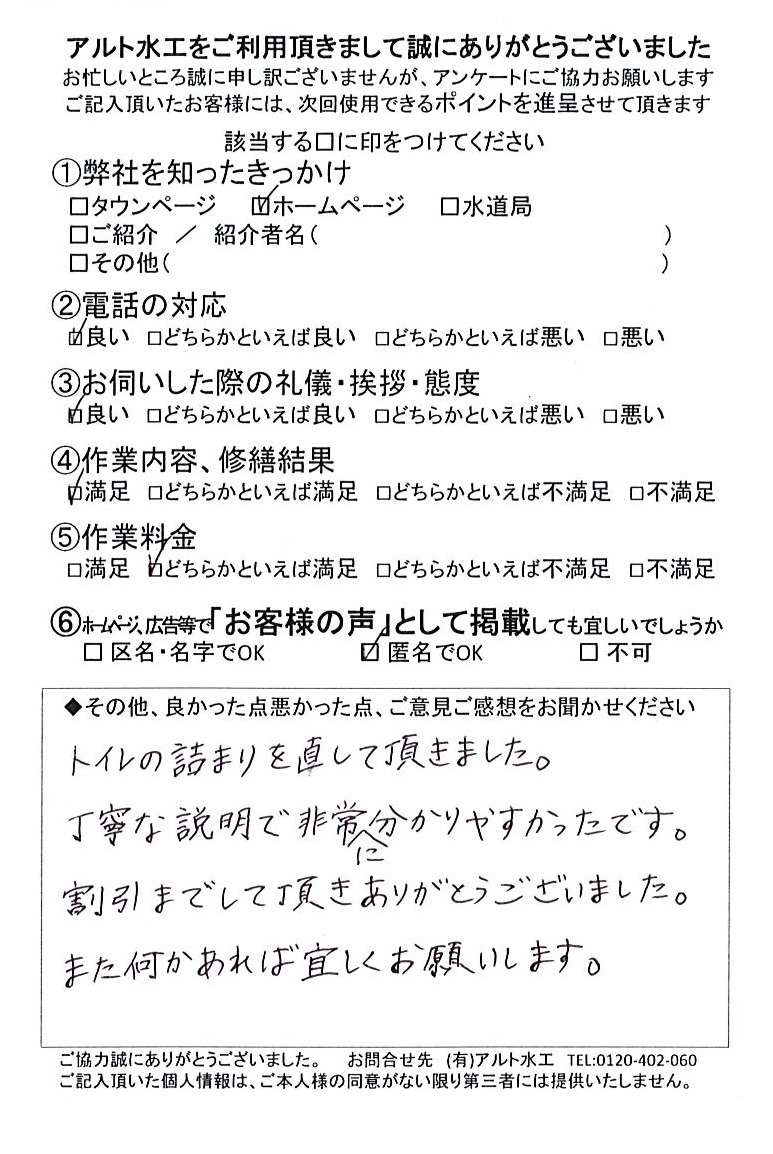 アルト水工をご利用頂きまして誠にありがとうございました
お忙しいところ誠に申し訳ございませんが、アンケートにご協力お願いします
ご記入頂いたお客様には、次回使用できるポイントを進呈させて頂きます
該当する□に印をつけてください
①弊社を知ったきっかけ
□タウンページ ☑ホームページ □水道局
□ご紹介 / 紹介者名( )
□その他( )
②電話の対応
☑良い □どちらかといえば良い □どちらかといえば悪い □悪い
③お伺いした際の礼儀・挨拶・態度
☑良い □どちらかといえば良い □どちらかといえば悪い □悪い
④作業内容、修繕結果
☑満足 □どちらかといえば満足 □どちらかといえば不満足 □不満足
⑤作業料金
□満足 ☑どちらかといえば満足 □どちらかといえば不満足 □不満足
⑥ホームページ、広告等で「お客様の声」として掲載しても宜しいでしょうか
□ 区名・名字でOK ☑ 匿名でOK □ 不可
◆その他、良かった点悪かった点、ご意見ご感想をお聞かせください
トイレの詰まりを直して頂きました。
丁寧な説明で非常に分かりやすかったです。
割引までして頂きありがとうございました。
また何かあれば宜しくお願いします。
ご協力誠にありがとうございました。 お問合せ先 (有)アルト水工 TEL:0120-402-060
ご記入頂いた個人情報は、ご本人様の同意がない限り第三者には提供いたしません。